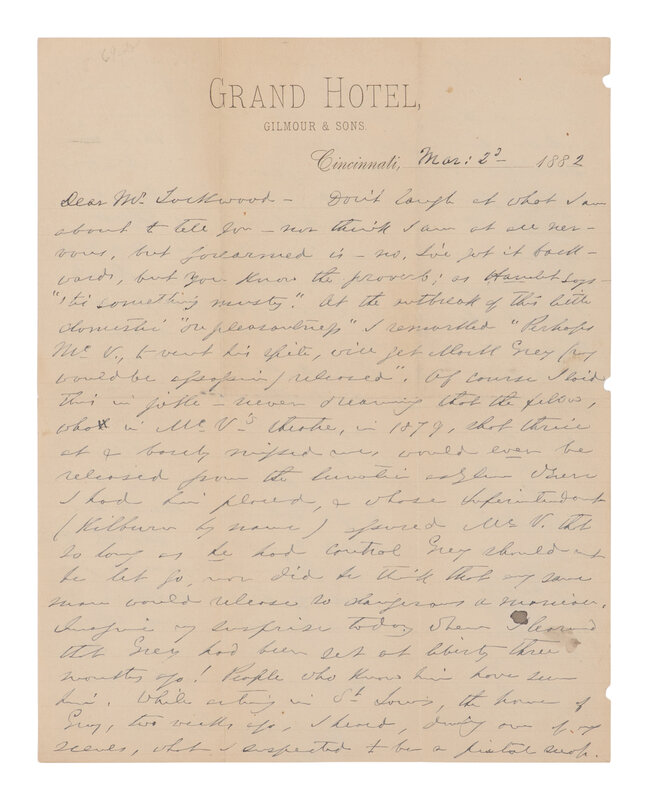 GRAND HOTEL,
GILMOUR & SONS.
Cincinnati, Mar: 2d 1882
Dear Mr Lockwood – Don't laugh at what I am
about to tell you – nor think I am at all ner-
vous, but forearmed is – no, I've got it back-
wards, but you know the proverb; as Hamlet says –
"'tis something musty". At the outbreak of this little
domestic "onpleasantness" I remarked "Perhaps
Mc V., to vent his spite, will get Mark Grey (my
would be assassin) released". Of course I said
this in joke – never dreaming that the fellow,
who in Mc V's theatre, in 1879, shot thrice
at & barely missed me, would ever be
released from the lunatic asylum where
I had him placed, & whose Superintendent
(Kilburn by name) assured Mc V. that
so long as he had control Grey should not
be let go, nor did he think that any sane
man would release so dangerous a maniac.
Imagine my surprise today when I learned
that Grey had been set at liberty three
months ago! People who know him have seen
him. While acting in St Louis, the home of
Grey, two weeks ago, I heard, during one of my
scenes, what I suspected to be a pistol snap.